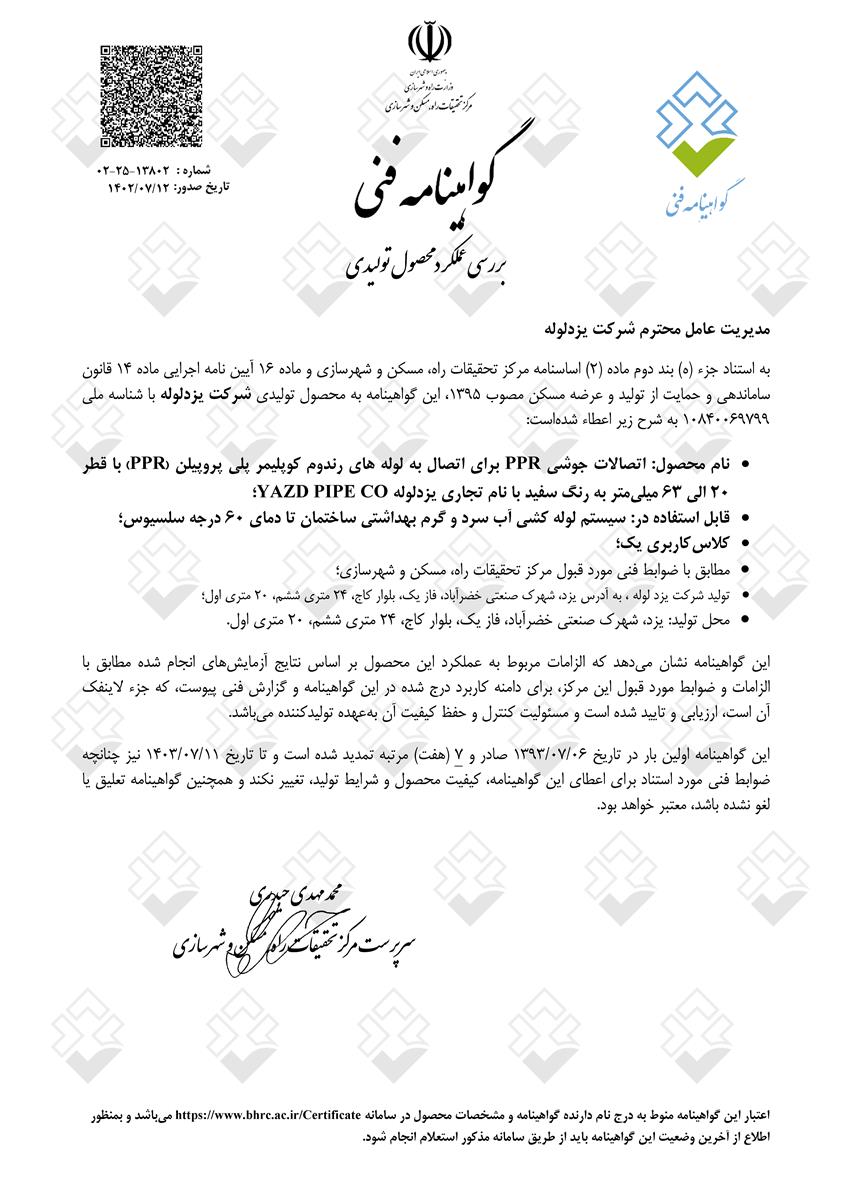 جمهوری اسلامی ایران
وزارت راه و شهرسازی
مرکز تحقیقات راه، مسکن و شهرسازی
گواهینامه فنی
بررسی عملکرد محصول تولیدی
شماره : ۱۳۸۰۲-۲۵-۰۲
تاریخ صدور: ۱۴۰۲/۰۷/۱۲
گواهینامه فنی
مدیریت عامل محترم شرکت یزدلوله
به استناد جزء (ه) بند دوم ماده (۲) اساسنامه مرکز تحقیقات راه، مسکن و شهرسازی و ماده ۱۶ آیین نامه اجرایی ماده ۱۴ قانون
ساماندهی و حمایت از تولید و عرضه مسکن مصوب ۱۳۹۵، این گواهینامه به محصول تولیدی شرکت یزدلوله با شناسه ملی
۱۰۸۴۰۰۶۹۷۹۹ به شرح زیر اعطاء شده‌است:
• نام محصول: اتصالات جوشی PPR برای اتصال به لوله های رندوم کوپلیمر پلی پروپیلن (PPR) با قطر
۲۰ الی ۶۳ میلی‌متر به رنگ سفید با نام تجاری یزدلوله YAZD PIPE CO؛
• قابل استفاده در: سیستم لوله کشی آب سرد و گرم بهداشتی ساختمان تا دمای ۶۰ درجه سلسیوس؛
• کلاس کاربری یک؛
• مطابق با ضوابط فنی مورد قبول مرکز تحقیقات راه، مسکن و شهرسازی؛
• تولید شرکت یزد لوله ، به آدرس یزد، شهرک صنعتی خضرآباد، فاز یک، بلوار کاج، ۲۴ متری ششم، ۲۰ متری اول؛
• محل تولید: یزد، شهرک صنعتی خضرآباد، فاز یک، بلوار کاج، ۲۴ متری ششم، ۲۰ متری اول.
این گواهینامه نشان می‌دهد که الزامات مربوط به عملکرد این محصول بر اساس نتایج آزمایش‌های انجام شده مطابق با
الزامات و ضوابط مورد قبول این مرکز، برای دامنه کاربرد درج شده در این گواهینامه و گزارش فنی پیوست، که جزء لاینفک
آن است، ارزیابی و تایید شده است و مسئولیت کنترل و حفظ کیفیت آن به‌عهده تولیدکننده می‌باشد.
این گواهینامه اولین بار در تاریخ ۱۳۹۳/۰۷/۰۶ صادر و ۷ (هفت) مرتبه تمدید شده است و تا تاریخ ۱۴۰۳/۰۷/۱۱ نیز چنانچه
ضوابط فنی مورد استناد برای اعطای این گواهینامه، کیفیت محصول و شرایط تولید، تغییر نکند و همچنین گواهینامه تعلیق یا
لغو نشده باشد، معتبر خواهد بود.
محمد مهدی حیدری
سرپرست مرکز تحقیقات راه، مسکن و شهرسازی
اعتبار این گواهینامه منوط به درج نام دارنده گواهینامه و مشخصات محصول در سامانه https://www.bhrc.ac.ir/Certificate می‌باشد و بمنظور
اطلاع از آخرین وضعیت این گواهینامه باید از طریق سامانه مذکور استعلام انجام شود.